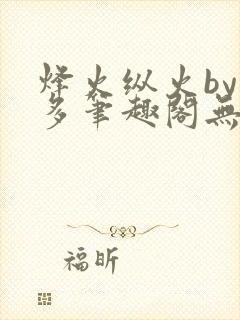 烽火纵火by
多笔趣阁無
福昕